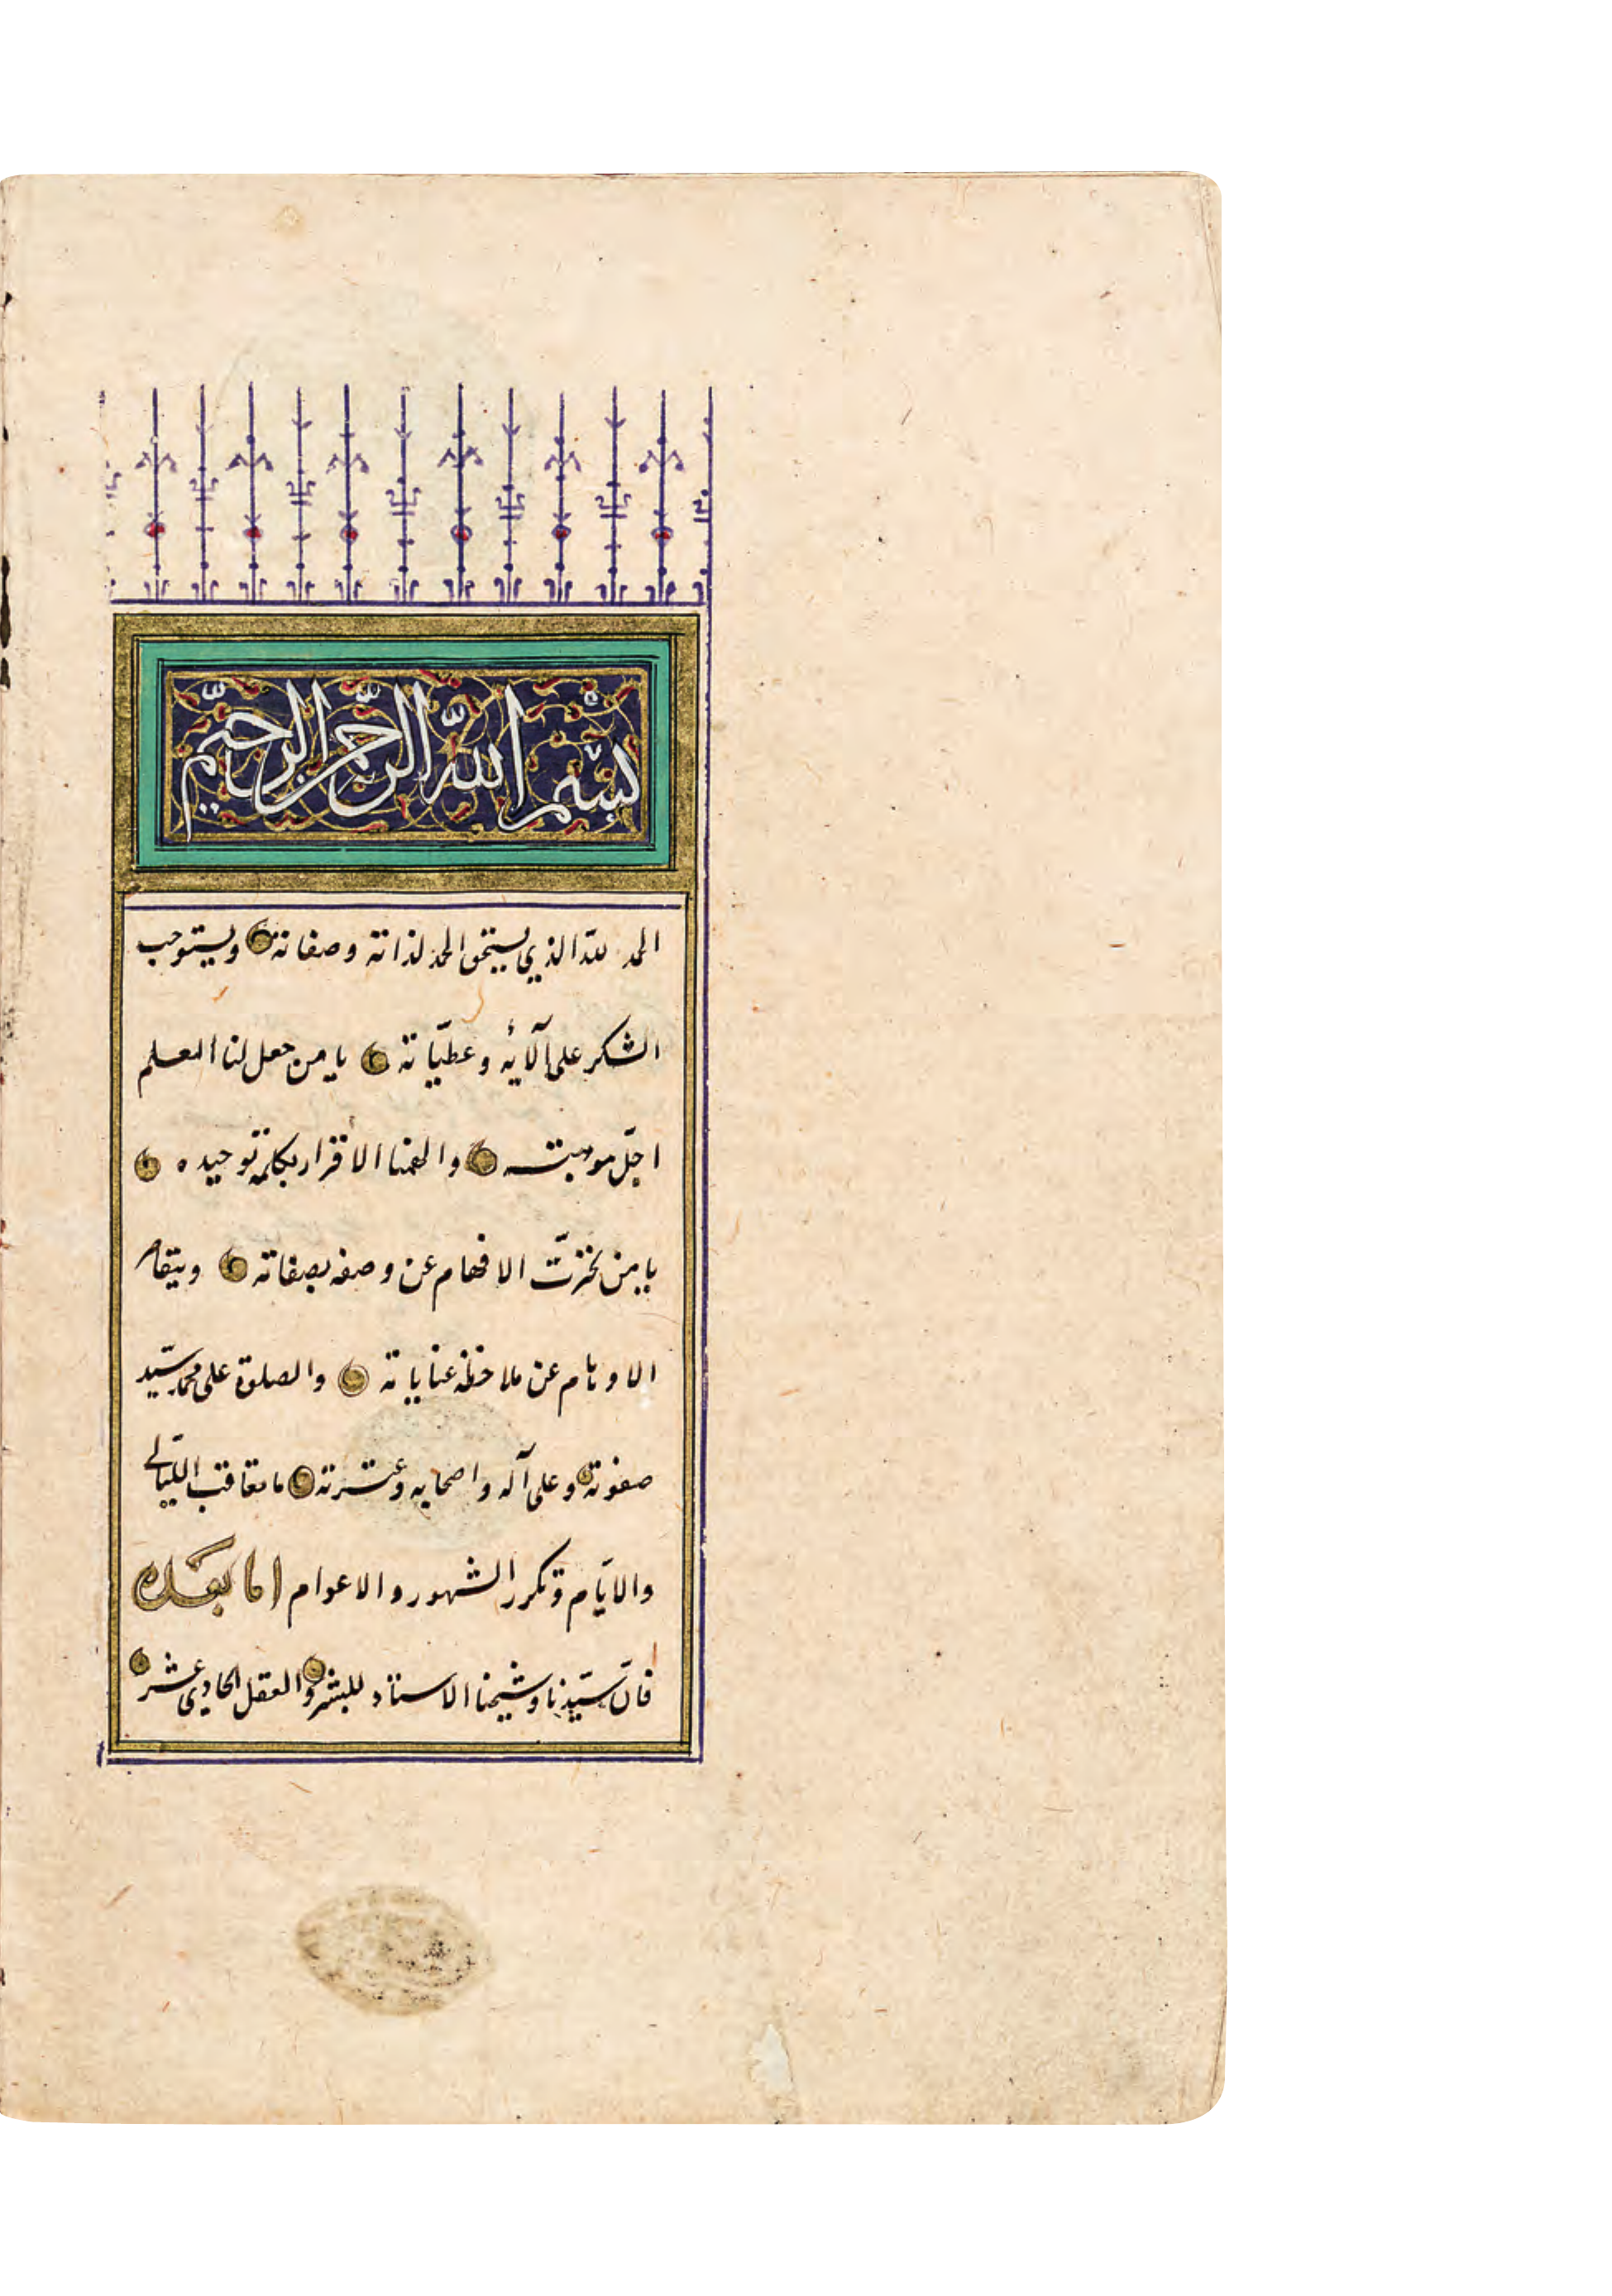 بسم الله الرحمن الرحيم
الحمد لله الذي يستحق الحمد لذاته وصفاته ويستوجب
الشكر على آلائه وعطيّاته يا من جعل لنا العلم
اجلّ موهبته والهمنا الأقرار بكلمة توحيده
يا من الافهام عن وصفه بصفاته
الاوهام عن ملاحظة عناياته والصلوة على محمد سيّد
صفوته وعلى آله واصحابه وعترته ما تعاقب الليالي
والايّام وتكرر الشهور والاعوام اما بعد
فانّ سيّدنا وشيخنا الاستاذ للبشر والعقل الحادي عشر